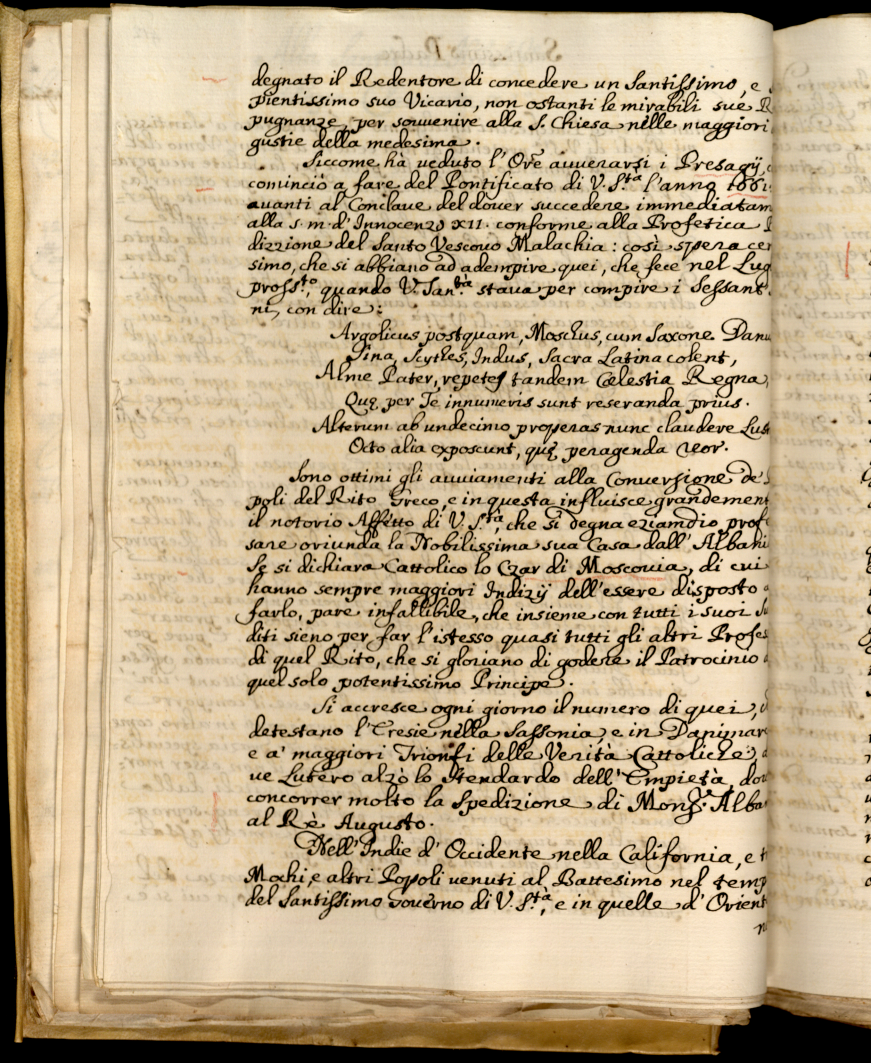 degnato il Redentore di concedere un Santissimo, e
pientissimo suo Vicario, non ostanti le mirabili sue R
pugnanze, per souuenire alla S. Chiesa nelle maggiori
gustie della medesima.
Siccome hà ueduto l'Ore auuerarsi i Presagij,
cominciò a fare del Pontificato di V. S.tà l'anno
auanti al Conclaue del douer succedere immediatam
alla s. m. d'Innocenzo XII. conforme alla Profetica P
dizzione del Santo Vescouo Malachia: così spera cer
simo, che si abbiano ad adempire quei, che fece nel Lug
pross.to, quando V. San.tà staua per compire i Sessant
ni, con dire:
Argolicus postquam, Moschus, cum Saxone Danu
Sina, Scythes, Indus, Sacra Latina colent,
Alme Pater, repetes tandem Cœlestia Regna,
Quę per Te innumeris sunt reseranda prius.
Alterum ab undecimo properas nunc claudere Lust
Octo alia exposcunt, quę peragenda reor.
Sono ottimi gli auuiamenti alla Conuersione de'
poli del Rito Greco, e in questa influisce grandement
il notorio Affetto di V. S.tà, che si degna eziamdio profe
sare oriunda la Nobilissima sua Casa dall'Albani
Se si dichiara Cattolico lo Czar di Moscouia, di cui
hanno sempre maggiori Indizij dell'essere disposto
farlo, pare infallibile, che insieme con tutti i suoi Su
diti sieno per far l'istesso quasi tutti gli altri Profes
di quel Rito, che si gloriano di godere il Patrocinio
quel solo potentissimo Principe.
Si accresce ogni giorno il numero di quei,
detestano l'Eresie nella Sassonia, e in Danimar
e a' maggiori Trionfi delle Verità Cattoliche,
ue Lutero alzò lo Stendardo dell'Empietà, dou
concorrer molto la Spedizione di Mons.r Alba
al Rè Augusto.
Nell'Indie d'Occidente nella California, e t
Mochi, e altri Popoli uenuti al Battesimo nel temp
del Santissimo Gouerno di V. S.tà, e in quelle d'Orient